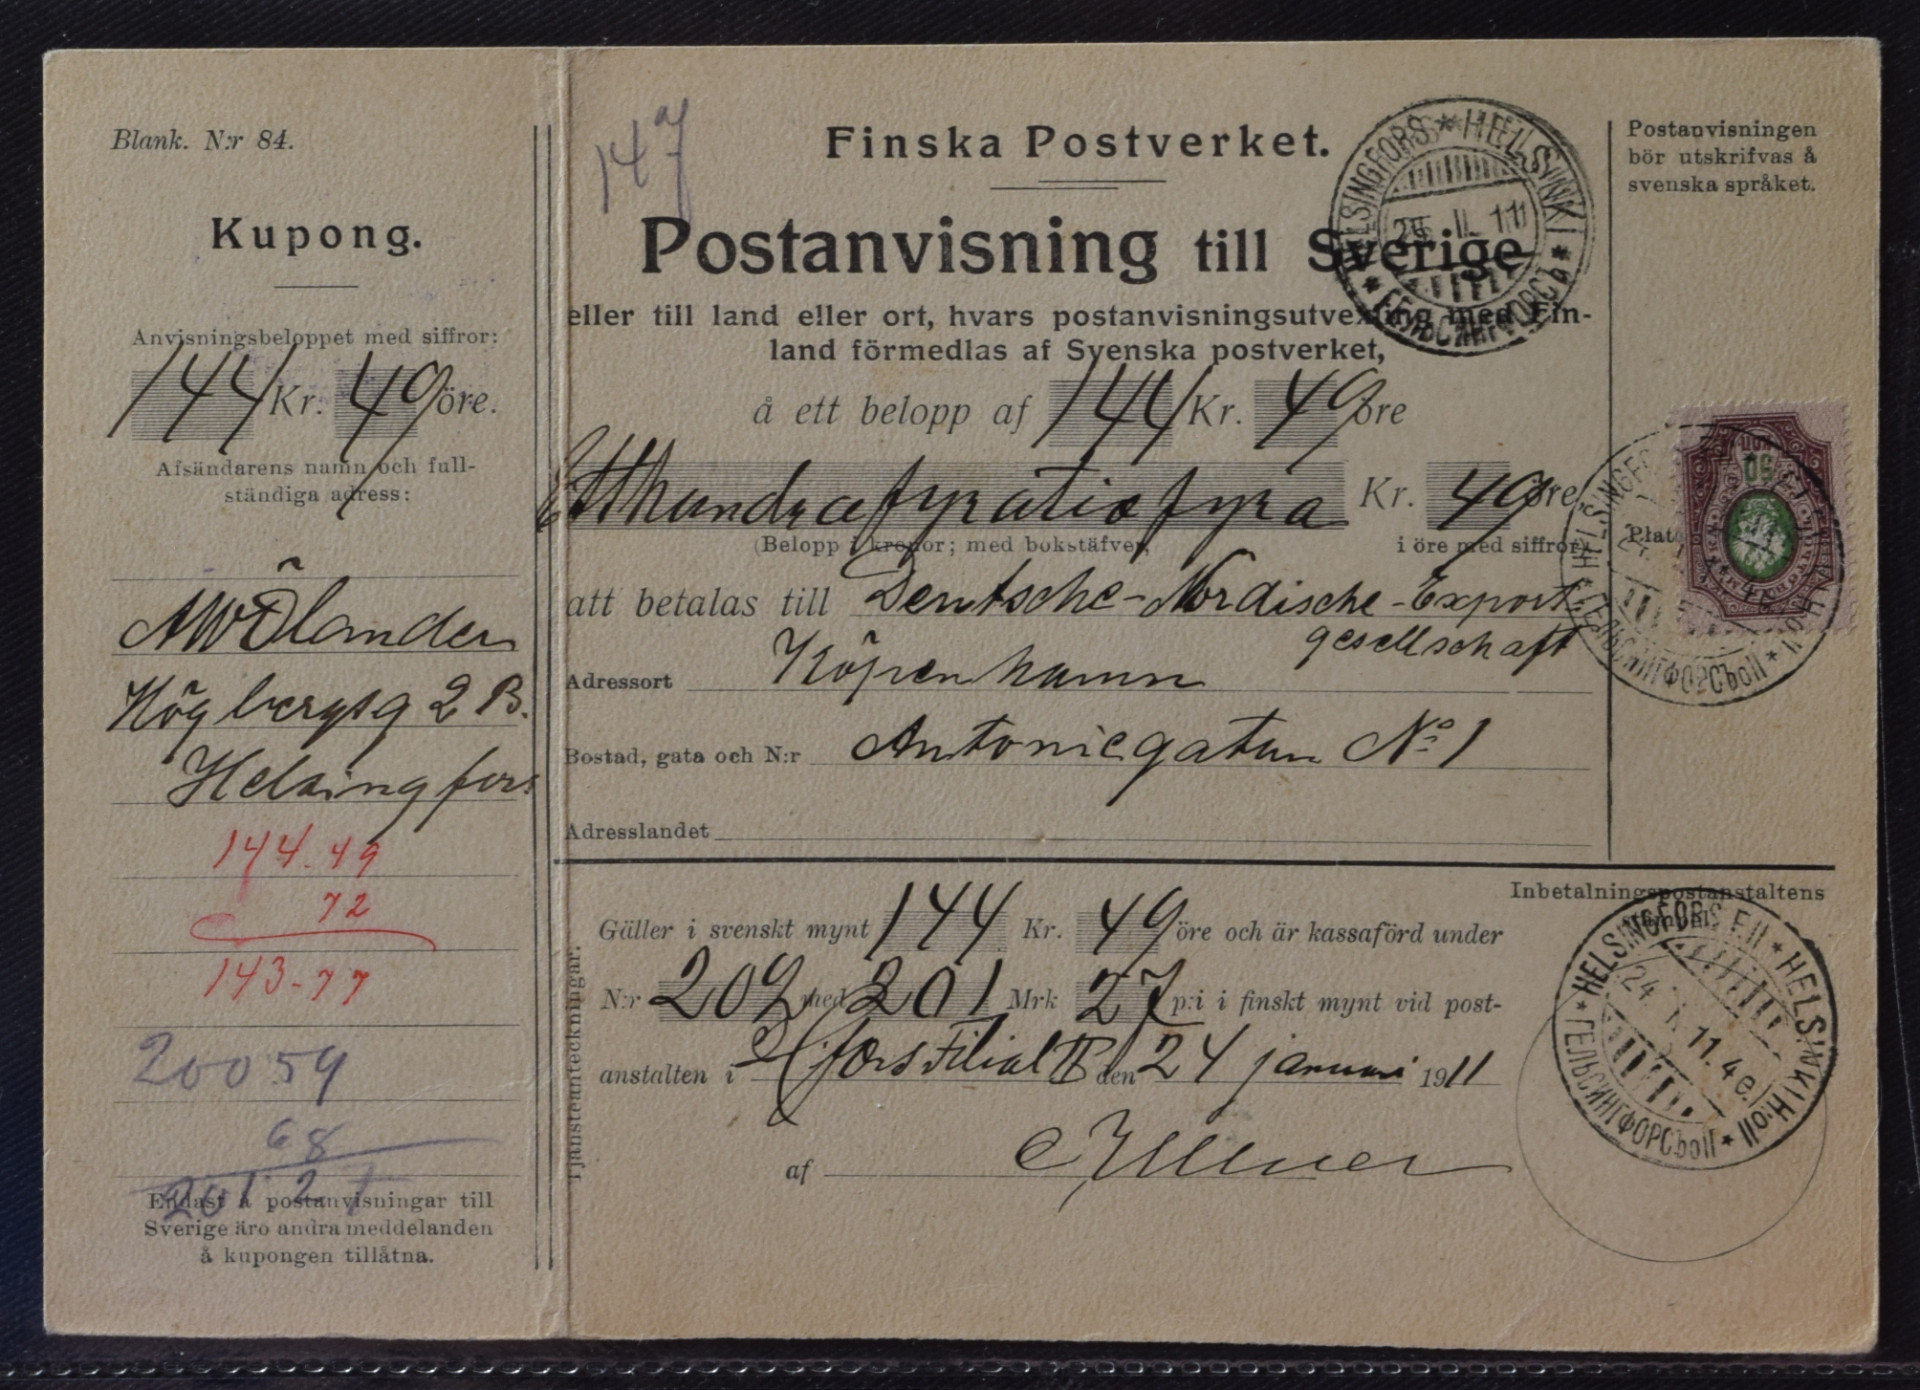 Blank. N:r 84.
Kupong.
Anvisningsbeloppet med siffror:
144 Kr. 49 öre.
Afsändarens namn och full-
ständiga adress:
AWÖlander
Högbergsg 2 B.
Helsingfors
144.49
72
143-77
200 59
68
201.27
Endast å postanvisningar till
Sverige äro andra meddelanden
å kupongen tillåtna.
147
Finska Postverket.
Postanvisning till Sverige
eller till land eller ort, hvars postanvisningsutvexling med Fin-
land förmedlas af Svenska postverket,
å ett belopp af 144 Kr. 49 öre
Etthundrafyratiofyra Kr. 49 öre
(Belopp i kronor; med bokstäfver, i öre med siffror)
att betalas till Deutsche-Nordische-Export
gesellschaft
Adressort Köpenhamn
Bostad, gata och N:r Antoniegatan No 1
Adresslandet
Postanvisningen
bör utskrifvas å
svenska språket.
HELSINGFORS * * HELSINKI * ГЕЛЬСИНГФОРСЪ *
25. II. 11
50
Inbetalningspostanstaltens
stämpel.
HELSINGFORS F.II * HELSINKI H:oII * ГЕЛЬСИНГФОРСЪoII *
24. I. 11. 4 e
Tjänsteanteckningar:
Gäller i svenskt mynt 144 Kr. 49 öre och är kassaförd under
N:r 209 med 201 Mrk 27 p:i i finskt mynt vid post-
anstalten i Hfors Filial II den 24 januari 1911
af